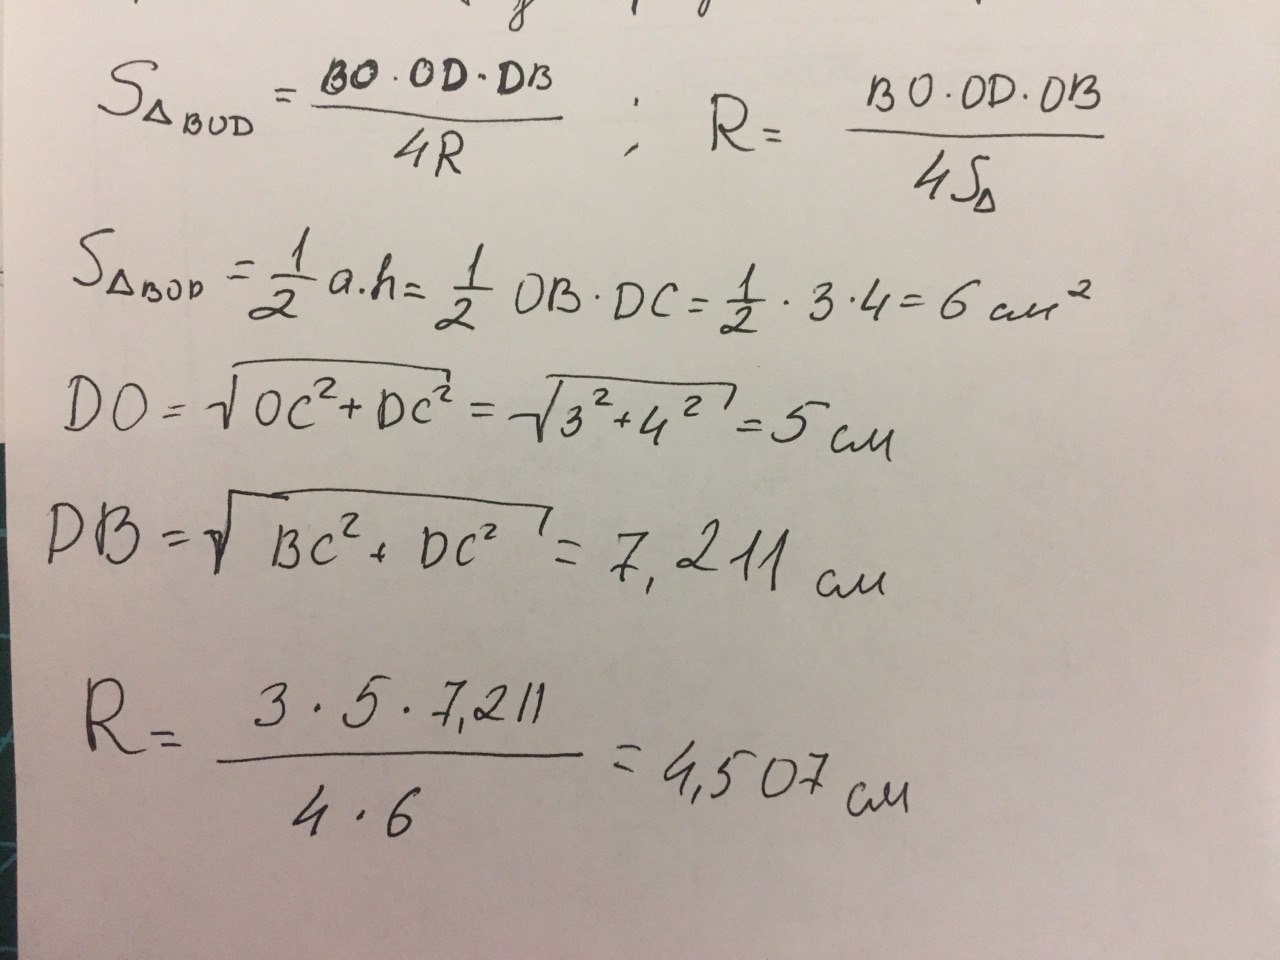 S△BOD = BO · OD · DB / 4R ; R = BO · OD · OB / 4S△
S△BOD = 1/2 a.h = 1/2 OB · DC = 1/2 · 3 · 4 = 6 см²
DO = √(OC² + DC²) = √(3² + 4²) = 5 см
DB = √(BC² + DC²) = 7,211 см
R = 3 · 5 · 7,211 / 4 · 6 = 4,507 см